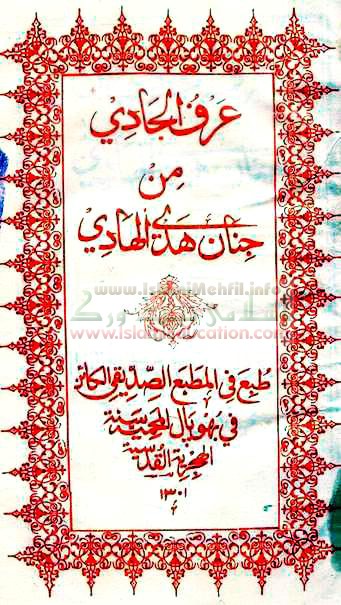 عرف الجادي
من
جنان هدي الهادي
www.IslamiMehfil.info
www.islamieducation.com
طبع في المطبع الصديقي الكائن
في بهوپال المحمية سنة
الهجرية القدسية
١٣٠١